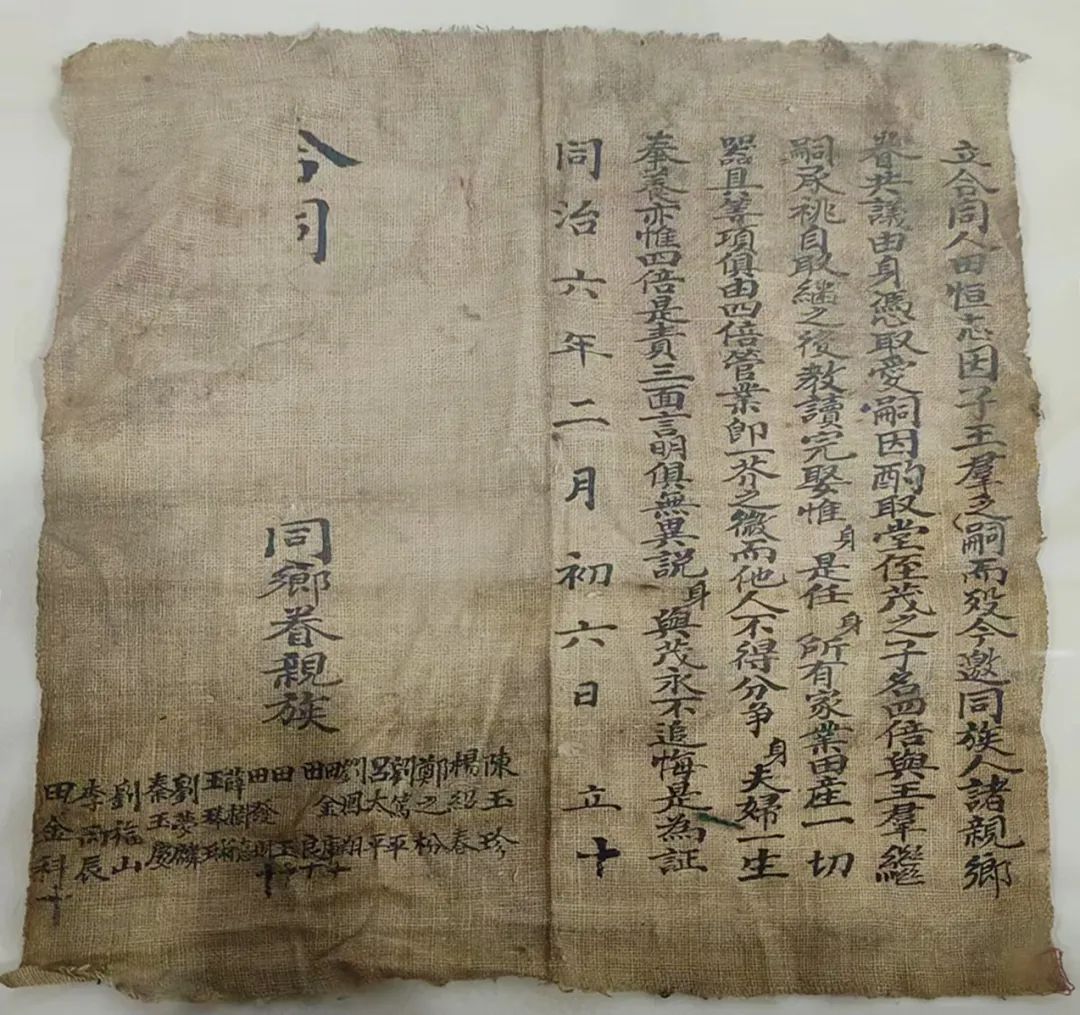 立合同人田恒志因子王羣之嗣而歿今邀同族人諸親鄉
眷共議由身憑取愛嗣因酌取堂侄茂之子名四倍與王羣繼
嗣承祧自取繼之後教讀完娶惟身是任身所有家業田庄一切
器具等項俱由四倍管業即一芥之微而他人不得分争身夫婦一生
奉養亦惟四倍是責三面言明俱無異説身與茂永不追悔是為証
同治六年二月初六日 立十
合同
同鄉眷親族
陳玉珍
楊紹春
鄭之松
劉篤平
呂大平
劉鳳翔
田金庫十
田良
田玉
田發明十
薛樹德
王珠琳
劉夢麟
秦玉慶
劉福山
李雨辰
田金科十